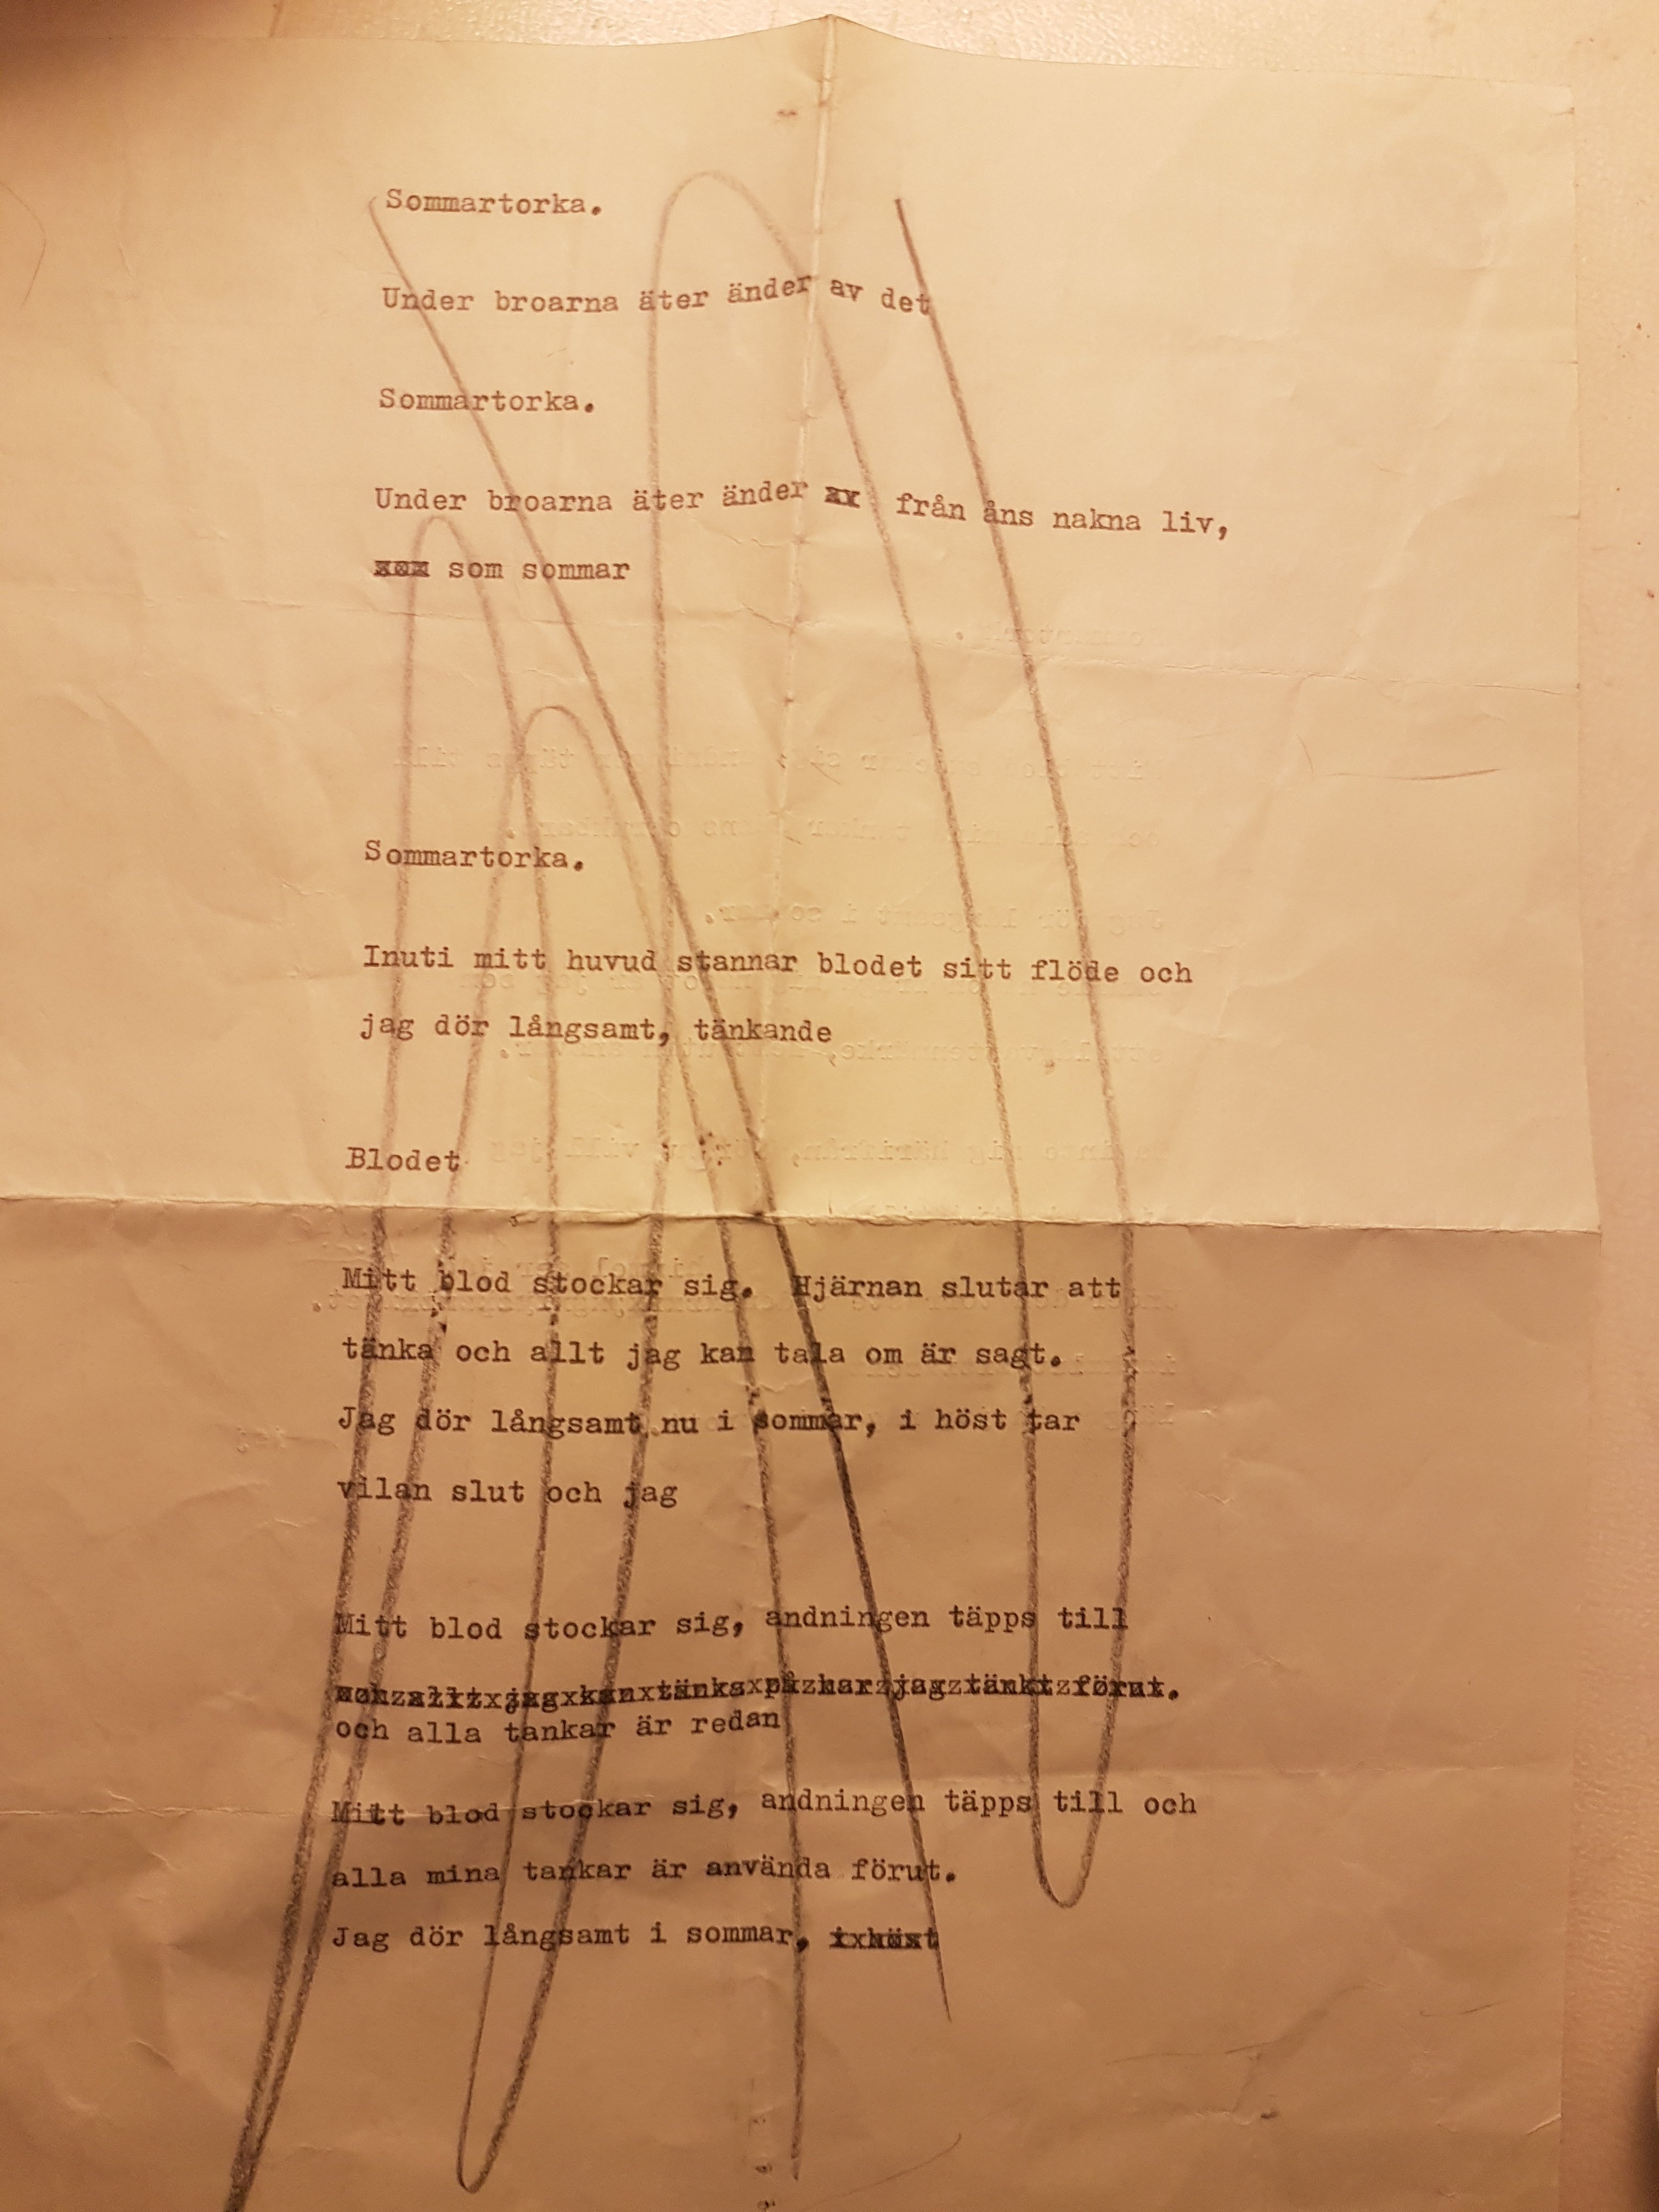 Sommartorka.
Under broarna äter änder av det
Sommartorka.
Under broarna äter änder av från åns nakna liv,
som som sommar
Sommartorka.
Inuti mitt huvud stannar blodet sitt flöde och
jag dör långsamt, tänkande
Blodet
Mitt blod stockar sig. Hjärnan slutar att
tänka och allt jag kan tala om är sagt.
Jag dör långsamt nu i sommar, i höst tar
vilan slut och jag
Mitt blod stockar sig, andningen täpps till
och allt jag kan tänka på har jag tänkt förut.
och alla tankar är redan
Mitt blod stockar sig, andningen täpps till och
alla mina tankar är använda förut.
Jag dör långsamt i sommar, i höst